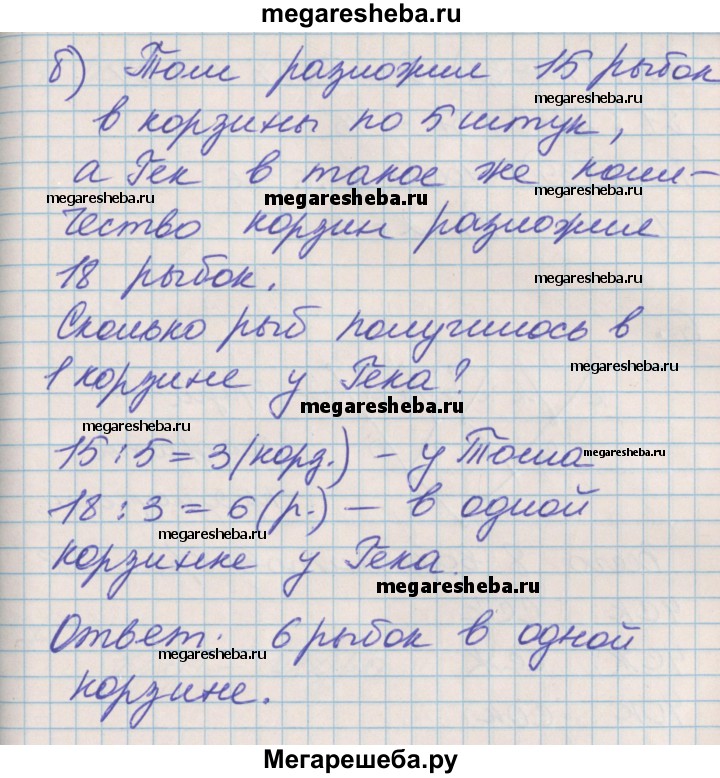 megaresheba.ru
б) Том разложил 15 рыбок
megaresheba.ru
в корзины по 5 штук,
а Гек в такое же коли-
megaresheba.ru
megaresheba.ru
megaresheba.ru
чество корзин разложил
18 рыбок.
megaresheba.ru
Сколько рыб получилось в
1 корзине у Гека?
megaresheba.ru
megaresheba.ru
megaresheba.ru
15 : 5 = 3 (корз.) - у Тома
megaresheba.ru
18 : 3 = 6 (р.) - в одной
megaresheba.ru
корзинке у Гека.
megaresheba.ru
Ответ: 6 рыбок в одной
megaresheba.ru
корзине.
Мегарешеба.ру